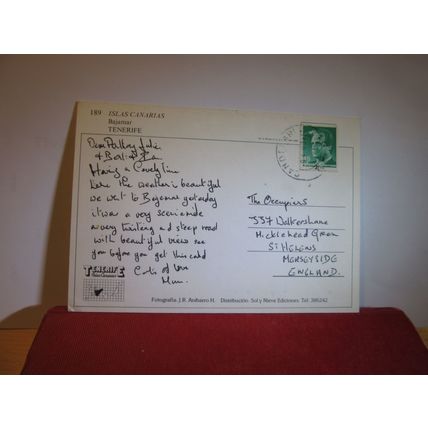 189 ISLAS CANARIAS
Bajamar
TENERIFE
Dear Anthony Julie
& Bert & Pam
Having a Lovely time
here the weather is beautiful
we went to Bajamar yesterday
it was a very scenic ride
a very twisting and steep road
with beautiful views see
you before you get this card
Lots of love
Mum.
The Occupiers
337
Green
ST HELENS
MERSEYSIDE
ENGLAND.
TENERIFE
Fotografía: J.R. Ambarro H. Distribución: Sol y Nieve Ediciones. Tel: 386242